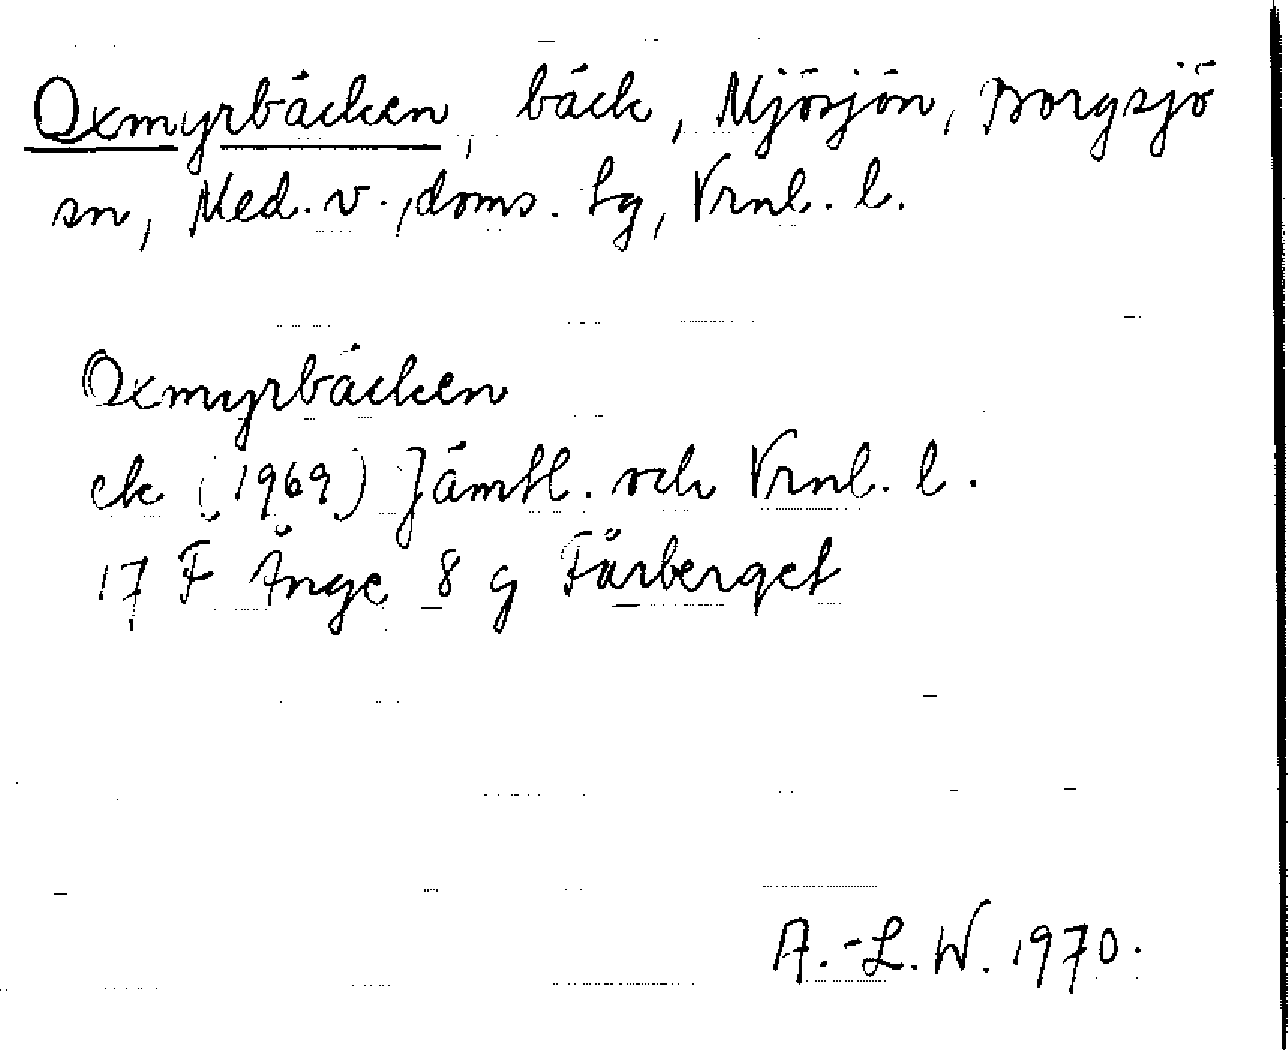 Oxmyrbäcken, bäck, Mjösjön, Borgsjö
sn, Med. v., doms. lg, Vrnl. l.
Oxmyrbäcken
ek (1969) Jämtl. och Vrnl. l.
17 F Ånge 8 g Fårberget
A.-L. W. 1970.